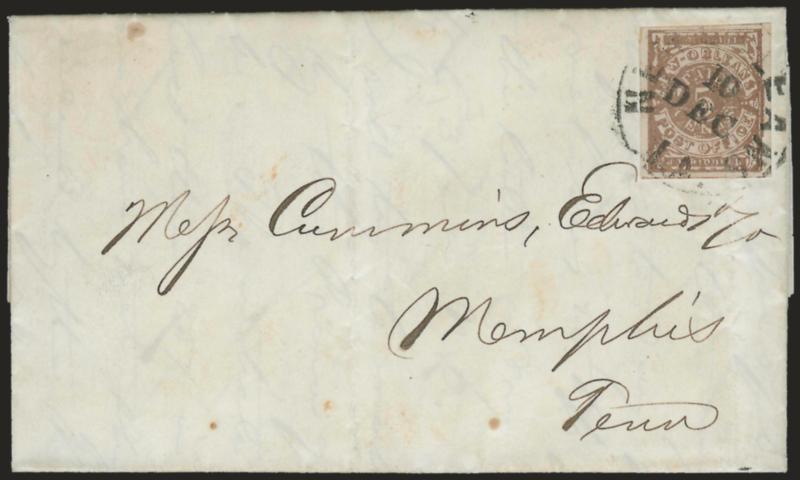 NEW-ORLEANS
5
CENTS
POST OFFICE
10
DEC
LA.
Messrs Cummins, Edwards & Co
Memphis
Tenn